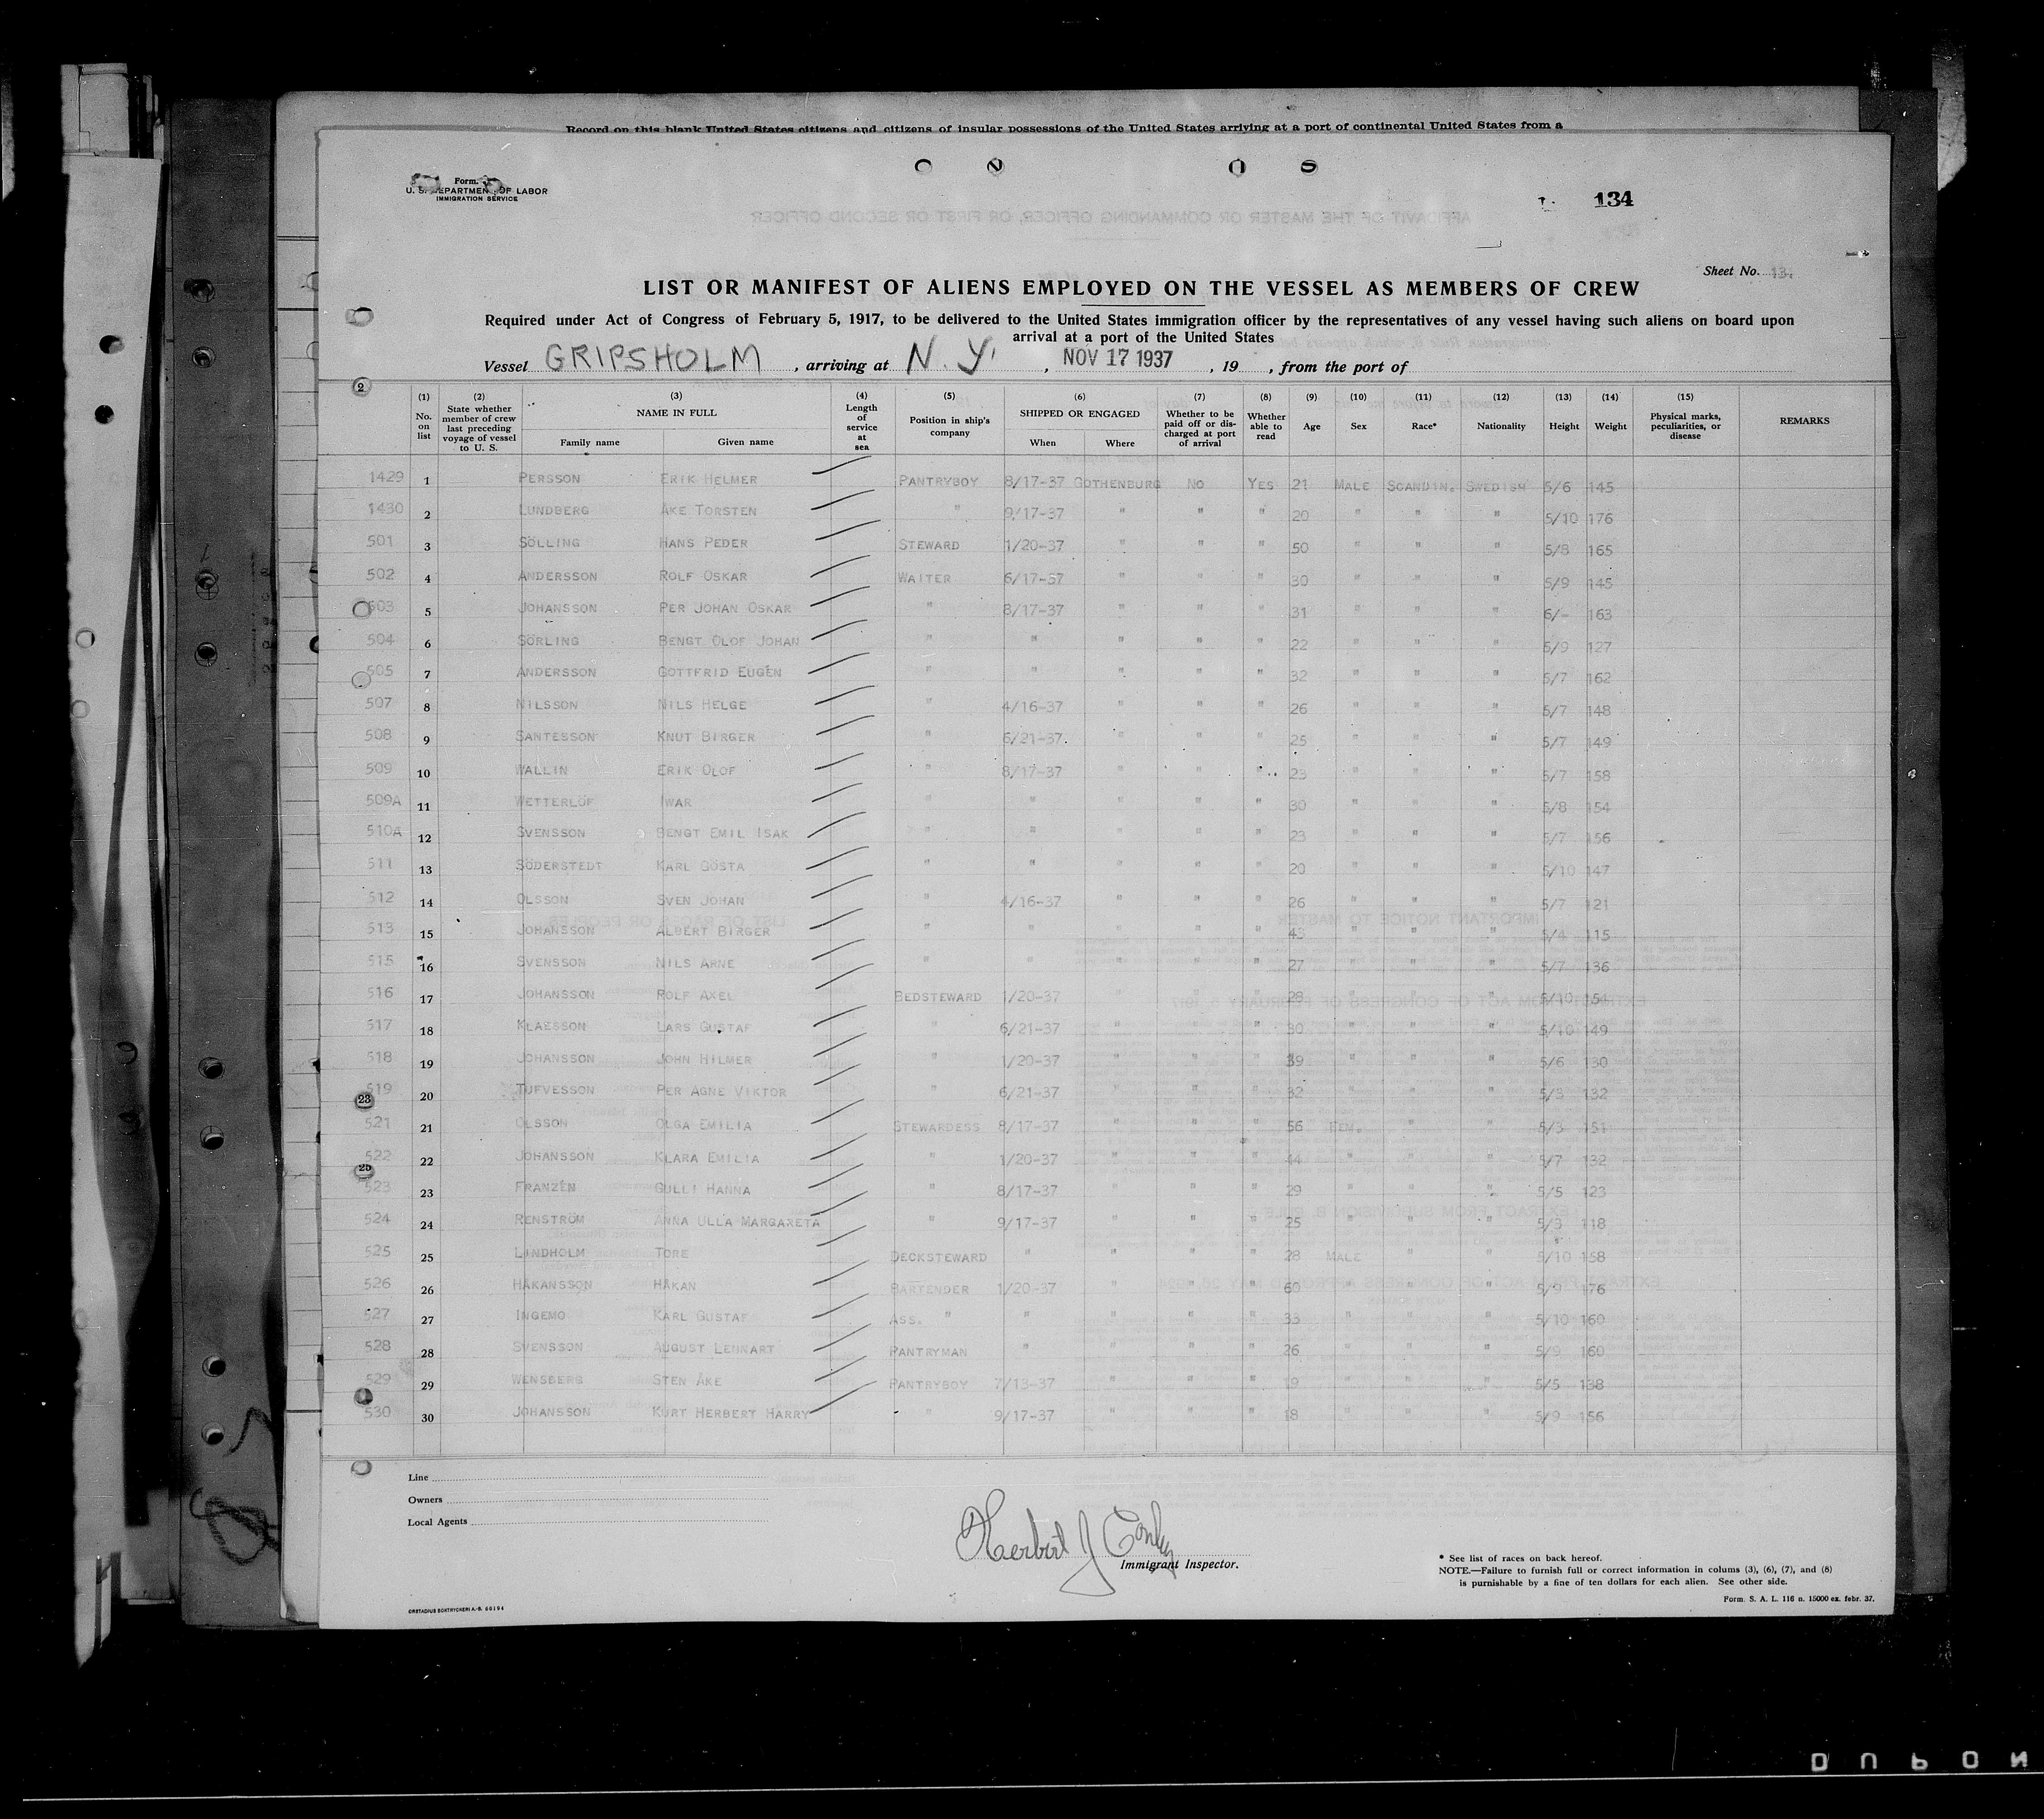 Record on this blank United States citizens and citizens of insular possessions of the United States arriving at a port of continental United States from a
Form.
U. S. DEPARTMENT OF LABOR
IMMIGRATION SERVICE
134
Sheet No. 13.
LIST OR MANIFEST OF ALIENS EMPLOYED ON THE VESSEL AS MEMBERS OF CREW
Required under Act of Congress of February 5, 1917, to be delivered to the United States immigration officer by the representatives of any vessel having such aliens on board upon
arrival at a port of the United States
Vessel GRIPSHOLM , arriving at N. Y. , NOV 17 1937 , 19 , from the port of
(1) No. on list (2) State whether member of crew last preceding voyage of vessel to U. S. (3) NAME IN FULL Family name Given name (4) Length of service at sea (5) Position in ship's company (6) SHIPPED OR ENGAGED When Where (7) Whether to be paid off or discharged at port of arrival (8) Whether able to read (9) Age (10) Sex (11) Race* (12) Nationality (13) Height (14) Weight (15) Physical marks, peculiarities, or disease REMARKS
1429 1 PERSSON ERIK HELMER PANTRYBOY 8/17-37 GOTHENBURG NO YES 21 MALE SCANDIN. SWEDISH 5/6 145
1430 2 LUNDBERG ÅKE TORSTEN " 9/17-37 " " " 20 " " " 5/10 176
501 3 SÖLLING HANS PEDER STEWARD 1/20-37 " " " 50 " " " 5/8 165
502 4 ANDERSSON ROLF OSKAR WAITER 6/17-57 " " " 30 " " " 5/9 145
503 5 JOHANSSON PER JOHAN OSKAR " 8/17-37 " " " 31 " " " 6/- 163
504 6 SÖRLING BENGT OLOF JOHAN " " " " " 22 " " " 5/9 127
505 7 ANDERSSON GOTTFRID EUGÉN " " " " " 32 " " " 5/7 162
507 8 NILSSON NILS HELGE " 4/16-37 " " " 26 " " " 5/7 148
508 9 SANTESSON KNUT BIRGER " 6/21-37. " " " 25 " " " 5/7 149
509 10 WALLIN ERIK OLOF " 8/17-37 " " " 23 " " " 5/7 158
509A 11 WETTERLÖF IWAR " " " " " 30 " " " 5/8 154
510A 12 SVENSSON BENGT EMIL ISAK " " " " " 23 " " " 5/7 156
511 13 SÖDERSTEDT KARL GÖSTA " " " " " 20 " " " 5/10 147
512 14 OLSSON SVEN JOHAN " 4/16-37 " " " 26 " " " 5/7 121
513 15 JOHANSSON ALBERT BIRGER " " " " " 43 " " " 5/4 115
515 16 SVENSSON NILS ARNE " " " " " 27 " " " 5/7 136
516 17 JOHANSSON ROLF AXEL BEDSTEWARD 1/20-37 " " " 28 " " " 5/10 154
517 18 KLAESSON LARS GUSTAF " 6/21-37 " " " 30 " " " 5/10 149
518 19 JOHANSSON JOHN HILMER " 1/20-37 " " " 39 " " " 5/6 130
519 20 TUFVESSON PER AGNE VIKTOR " 6/21-37 " " " 32 " " " 5/3 132
521 21 OLSSON OLGA EMILIA STEWARDESS 8/17-37 " " " 56 FEM. " " 5/3 151
522 22 JOHANSSON KLARA EMILIA " 1/20-37 " " " 44 " " " 5/7 132
523 23 FRANZÉN GULLI HANNA " 8/17-37 " " " 29 " " " 5/5 123
524 24 RENSTRÖM ANNA ULLA MARGARETA " 9/17-37 " " " 25 " " " 5/3 118
525 25 LINDHOLM TORE DECKSTEWARD " " " " 28 MALE " " 5/10 158
526 26 HÅKANSSON HÅKAN BARTENDER 1/20-37 " " " 60 " " " 5/9 176
527 27 INGEMO KARL GUSTAF ASS. " " " " " 33 " " " 5/10 160
528 28 SVENSSON AUGUST LENNART PANTRYMAN " " " " 26 " " " 5/9 160
529 29 WENSBERG STEN ÅKE PANTRYBOY 7/13-37 " " " 19 " " " 5/5 138
530 30 JOHANSSON KURT HERBERT HARRY " 9/17-37 " " " 18 " " " 5/9 156
Line
Owners
Local Agents
Herbert J Conley
Immigrant Inspector.
* See list of races on back hereof.
NOTE.—Failure to furnish full or correct information in colums (3), (6), (7), and (8)
is purnishable by a fine of ten dollars for each alien. See other side.
Form. S. A. L. 116 n. 15000 ex. febr. 37.